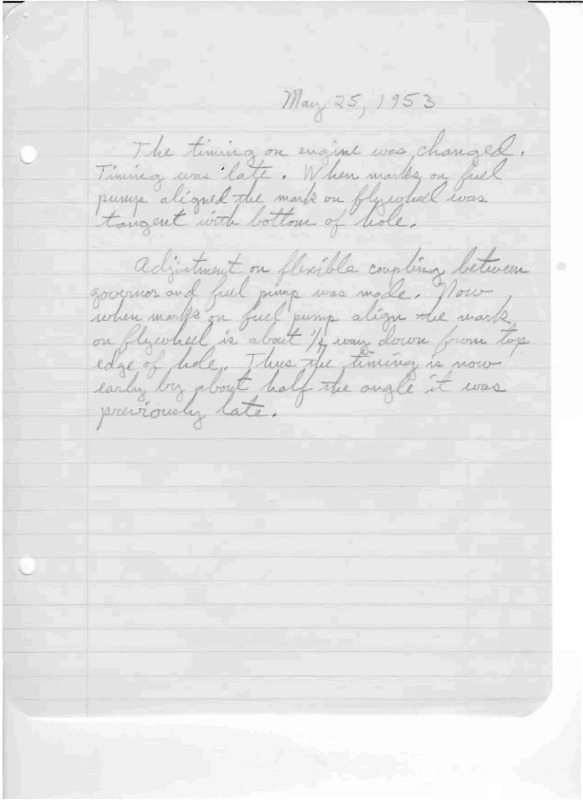 May 25, 1953
The timing on engine was changed.
Timing was late. When marks on fuel
pump aligned the mark on flywheel was
tangent with bottom of hole.
Adjustment on flexible coupling between
governor and fuel pump was made. Now
when marks on fuel pump align the mark
on flywheel is about way down from top
edge of hole. Thus the timing is now
early by about half the angle it was
previously late.